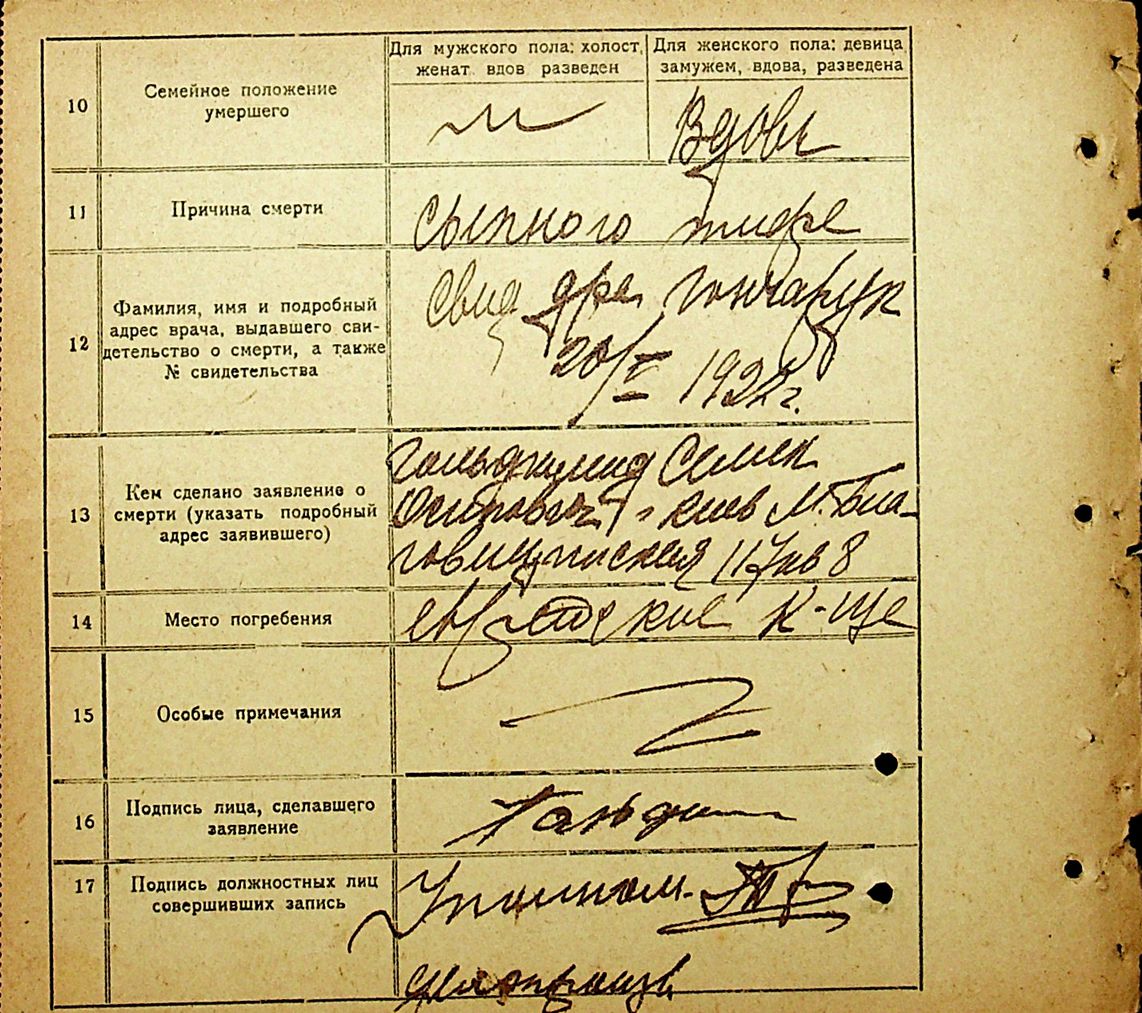 Для мужского пола: холост, женат вдов разведен
Для женского пола: девица, замужем, вдова, разведена
10
Семейное положение
умершего
Вдова
11
Причина смерти
сыпного тифа
12
Фамилия, имя и подробный
адрес врача, выдавшего сви-
детельство о смерти, а также
№ свидетельства
свид д-ра Гончарук
20/V 1922 г.
13
Кем сделано заявление о
смерти (указать подробный
адрес заявившего)
Гольдшмид
г Киев М. Бла-
говещенская 117 кв 8
14
Место погребения
еврейское к-ще
15
Особые примечания
16
Подпись лица, сделавшего
заявление
17
Подпись должностных лиц
совершивших запись